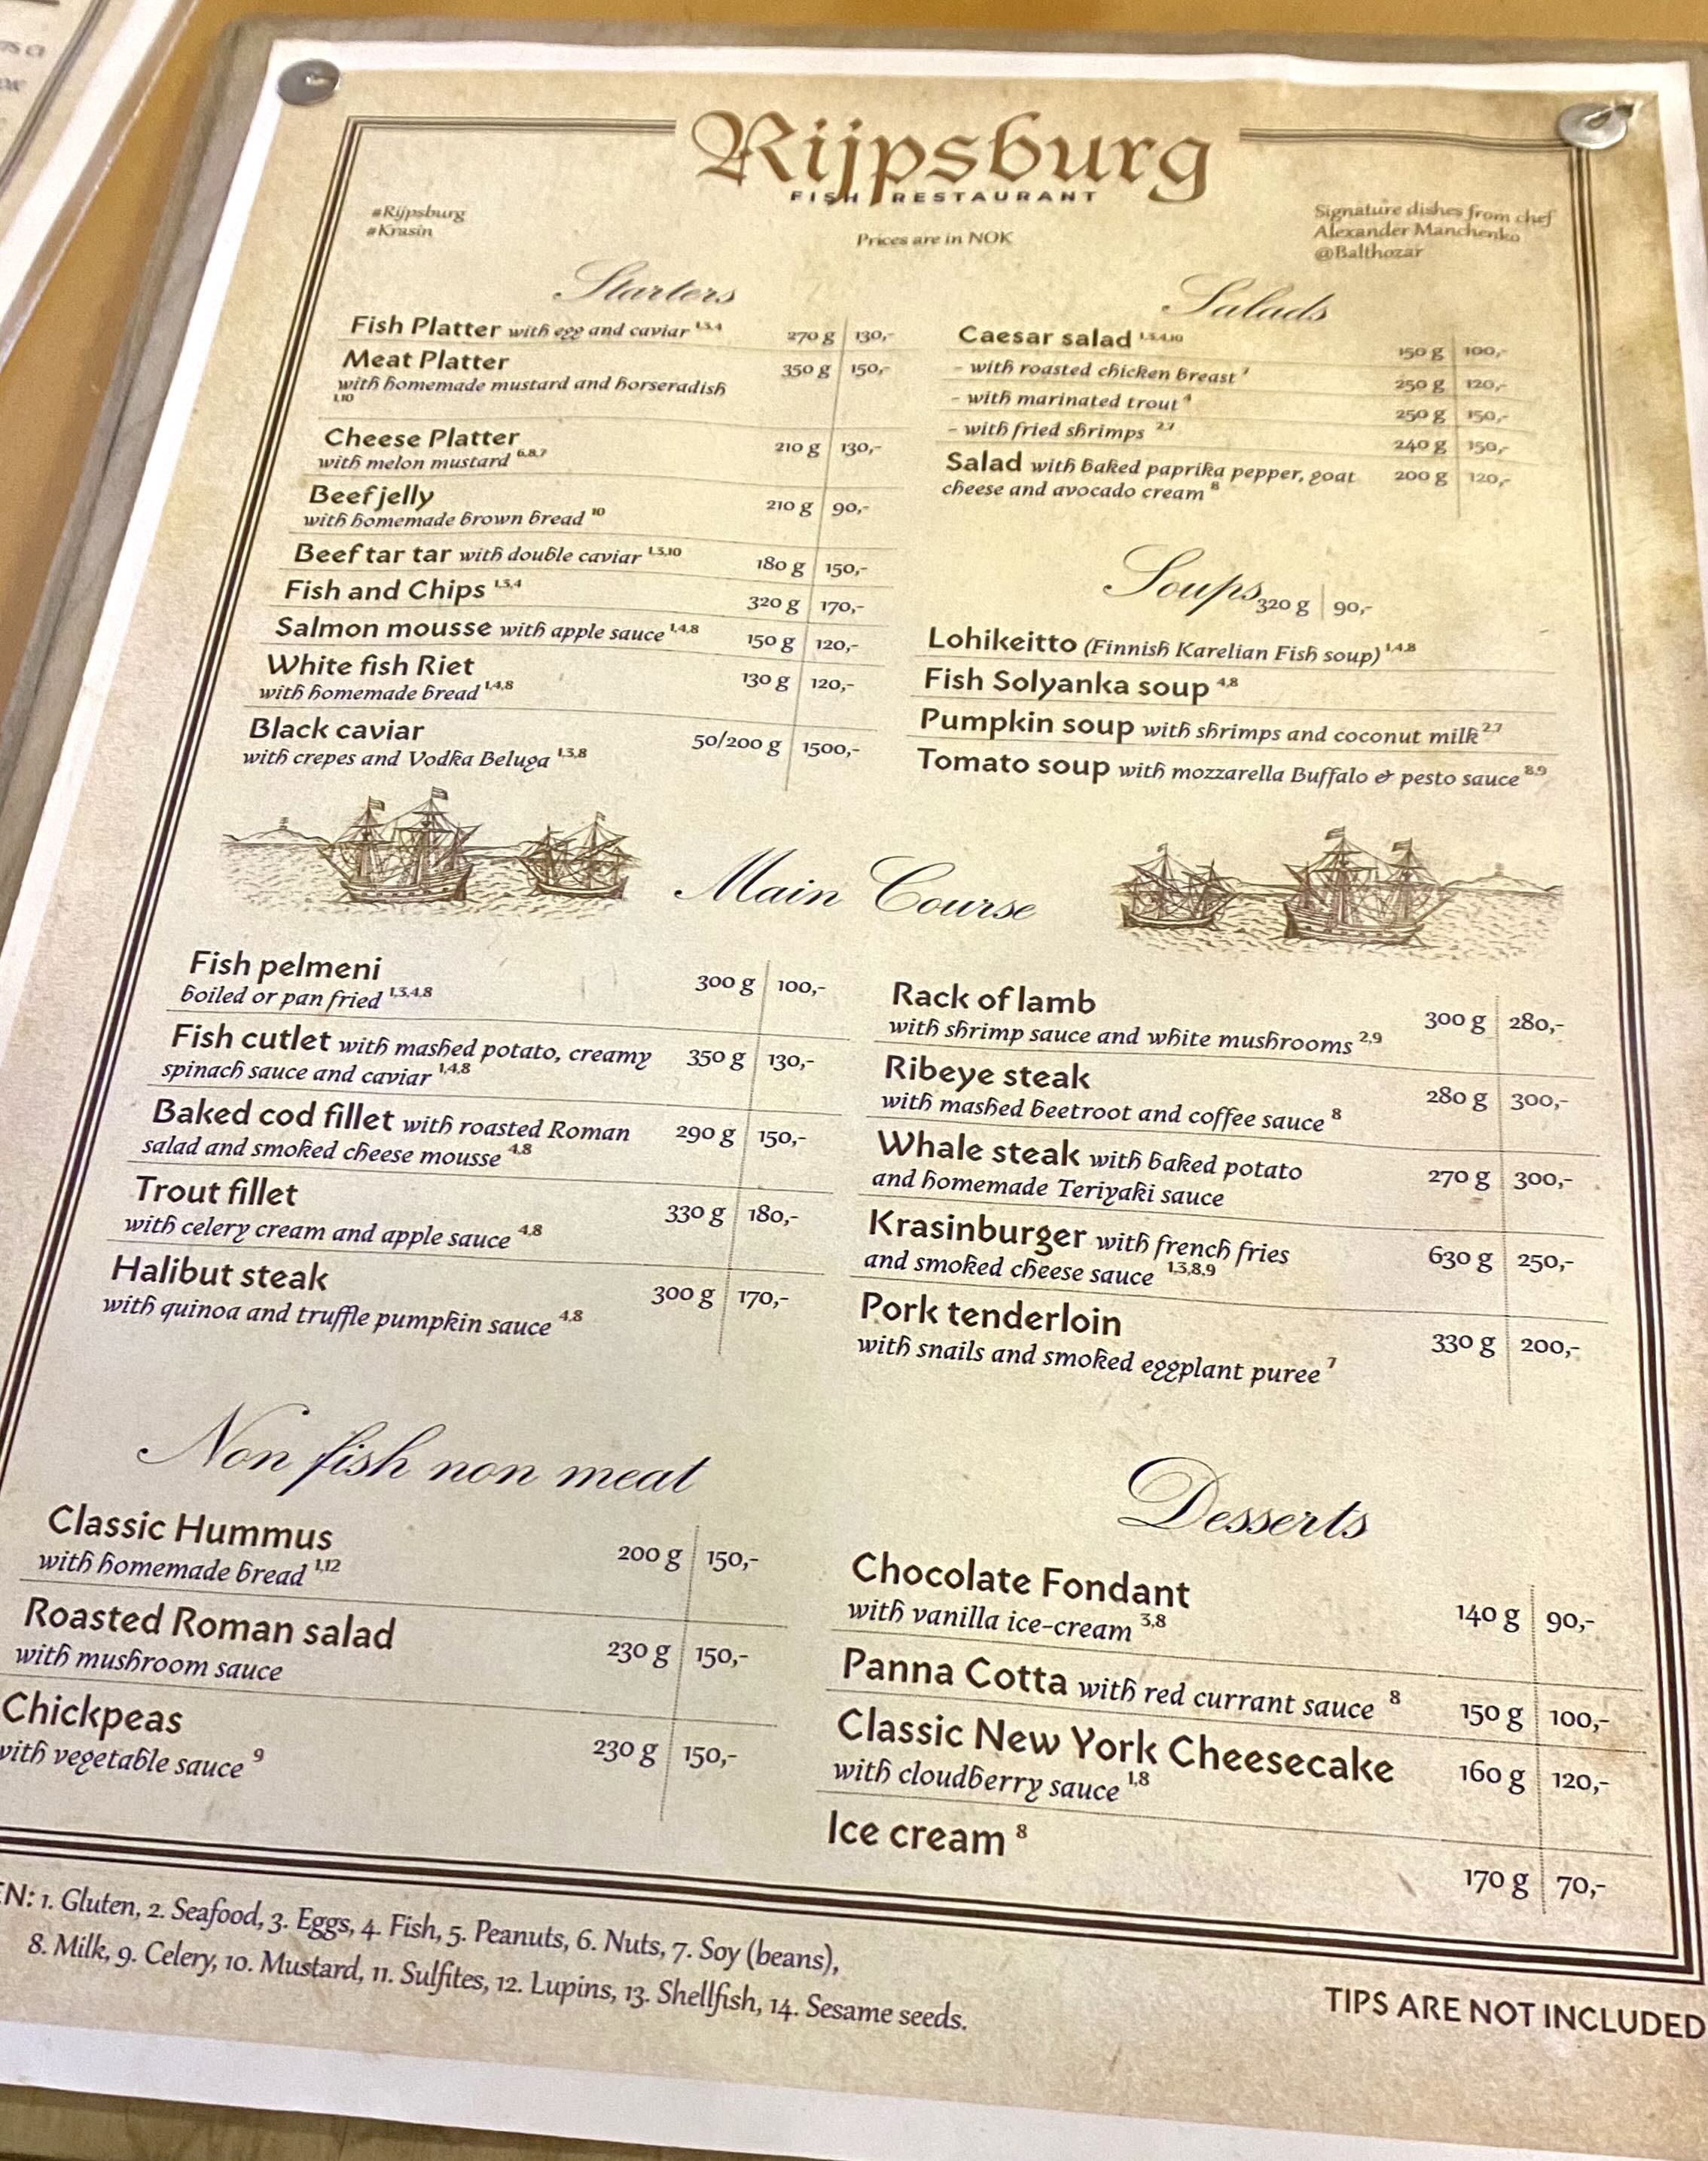 Rijpsburg
FISH RESTAURANT
#Rijpsburg
#Krasin
Prices are in NOK
Signature dishes from chef
Alexander Manchenko
@Balthozar
Starters
Fish Platter with egg and caviar 1,3,4 270 g 130,-
Meat Platter 350 g 150,-
with homemade mustard and horseradish
1,10
Cheese Platter 210 g 130,-
with melon mustard 6,8,7
Beef jelly 210 g 90,-
with homemade brown bread 10
Beef tar tar with double caviar 1,3,10 180 g 150,-
Fish and Chips 1,3,4 320 g 170,-
Salmon mousse with apple sauce 1,4,8 150 g 120,-
White fish Riet 130 g 120,-
with homemade bread 1,4,8
Black caviar 50/200 g 1500,-
with crepes and Vodka Beluga 1,3,8
Salads
Caesar salad 1,3,4,10 150 g 100,-
- with roasted chicken breast 7 250 g 120,-
- with marinated trout 4 250 g 150,-
- with fried shrimps 2,7 240 g 150,-
Salad with baked paprika pepper, goat 200 g 120,-
cheese and avocado cream 8
Soups 320 g 90,-
Lohikeitto (Finnish Karelian Fish soup) 1,4,8
Fish Solyanka soup 4,8
Pumpkin soup with shrimps and coconut milk 2,7
Tomato soup with mozzarella Buffalo & pesto sauce 8,9
Main Course
Fish pelmeni 300 g 100,-
boiled or pan fried 1,3,4,8
Fish cutlet with mashed potato, creamy 350 g 130,-
spinach sauce and caviar 1,4,8
Baked cod fillet with roasted Roman 290 g 150,-
salad and smoked cheese mousse 4,8
Trout fillet 330 g 180,-
with celery cream and apple sauce 4,8
Halibut steak 300 g 170,-
with quinoa and truffle pumpkin sauce 4,8
Rack of lamb 300 g 280,-
with shrimp sauce and white mushrooms 2,9
Ribeye steak 280 g 300,-
with mashed beetroot and coffee sauce 8
Whale steak with baked potato 270 g 300,-
and homemade Teriyaki sauce
Krasinburger with french fries 630 g 250,-
and smoked cheese sauce 1,3,8,9
Pork tenderloin 330 g 200,-
with snails and smoked eggplant puree 7
Non fish non meat
Classic Hummus 200 g 150,-
with homemade bread 1,12
Roasted Roman salad 230 g 150,-
with mushroom sauce
Chickpeas 230 g 150,-
with vegetable sauce 9
Desserts
Chocolate Fondant 140 g 90,-
with vanilla ice-cream 3,8
Panna Cotta with red currant sauce 8 150 g 100,-
Classic New York Cheesecake 160 g 120,-
with cloudberry sauce 1,8
Ice cream 8 170 g 70,-
EN: 1. Gluten, 2. Seafood, 3. Eggs, 4. Fish, 5. Peanuts, 6. Nuts, 7. Soy (beans),
8. Milk, 9. Celery, 10. Mustard, 11. Sulfites, 12. Lupins, 13. Shellfish, 14. Sesame seeds.
TIPS ARE NOT INCLUDED